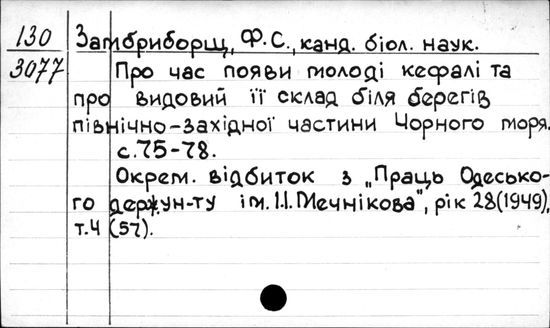 130 Замбриборщ, Ф.С., канд. біол. наук.
3077 Про час появи молоді кефалі та
про видовий її склад біля берегів
північно-західної частини Чорного моря.
с.75-78.
Окрем. відбиток з „Праць Одесько-
го держ.ун-ту ім. І.І.Мечнікова", рік 28(1949),
т.4 (57).